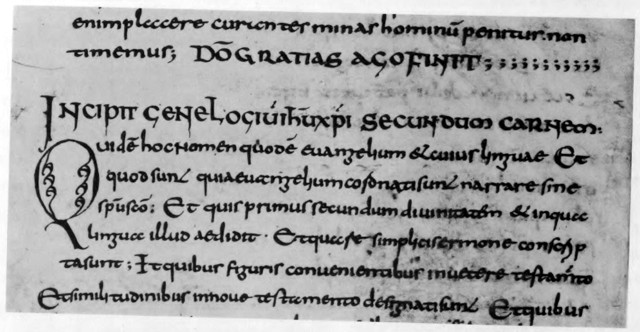 enimplaccere curientes minas hominū penitur. non
timemus; DŌ GRATIAS AGO FINIT;;;;;;;;;;;
INCIPIT GENELOGIŪ IHŪ XPI SECUNDUM CARNEM:
Quidē hoc nomen quod ē euangelium & cuius linguae Et
quod sunt quia euangelium cosonati sunt narrare sine
spū scō: Et quis primus secundum diuinitatem & in qua
lingua illud aedidit · Et quase simplici sermone
ta sunt; It quibus figuris conuenientibus in uetere testamto
Et similitudinibus in noue testamento designati sunt Et quibus